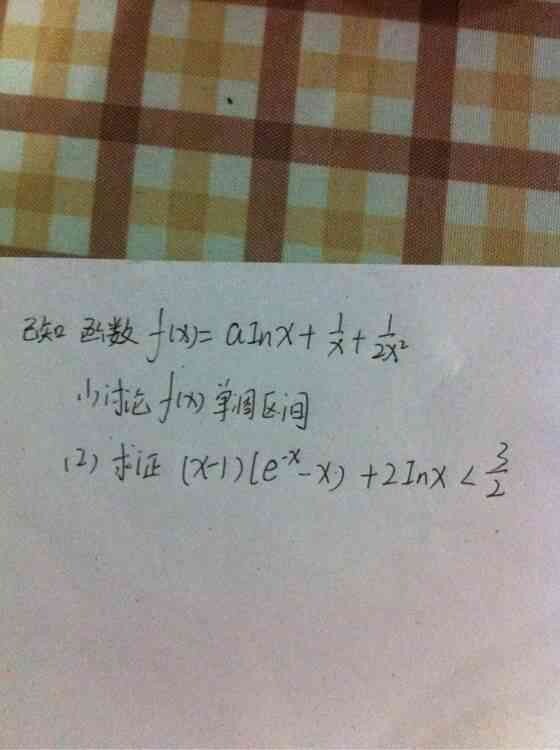 已知 函数 f(x)= aInx + 1/x + 1/2x²
(1) 讨论 f(x) 单调区间
(2) 求证 (x-1)(e⁻ˣ-x) + 2Inx < 3/2